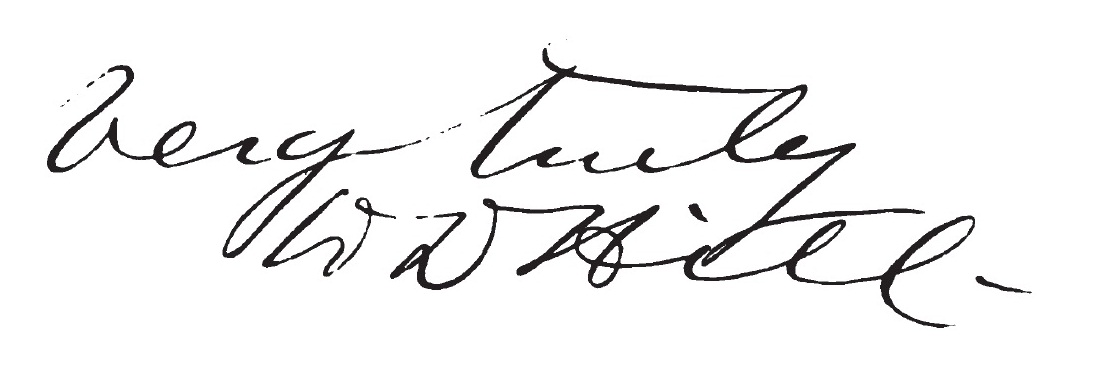 Very truly
W D Hill